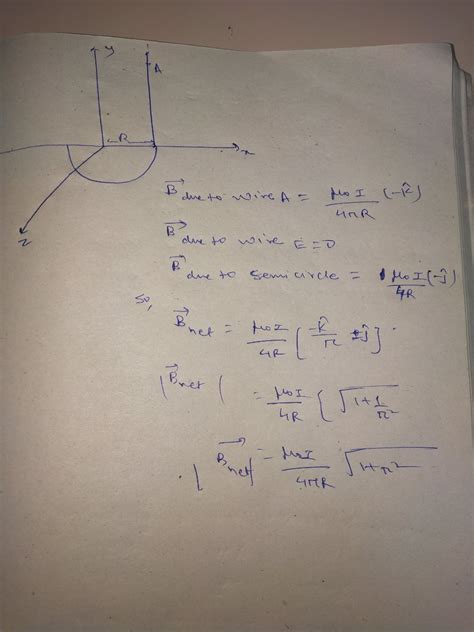 y
A
R
x
Z
B⃗ due to wire A = μ₀I/4πR (-k̂)
B⃗ due to wire E = 0
B⃗ due to semicircle = μ₀I/4R (-ĵ)
So,
B⃗net = μ₀I/4R [-k̂/π - ĵ]
|B⃗net| = μ₀I/4R { √1+1/π²
|B⃗net| = μ₀I/4πR √1+π²